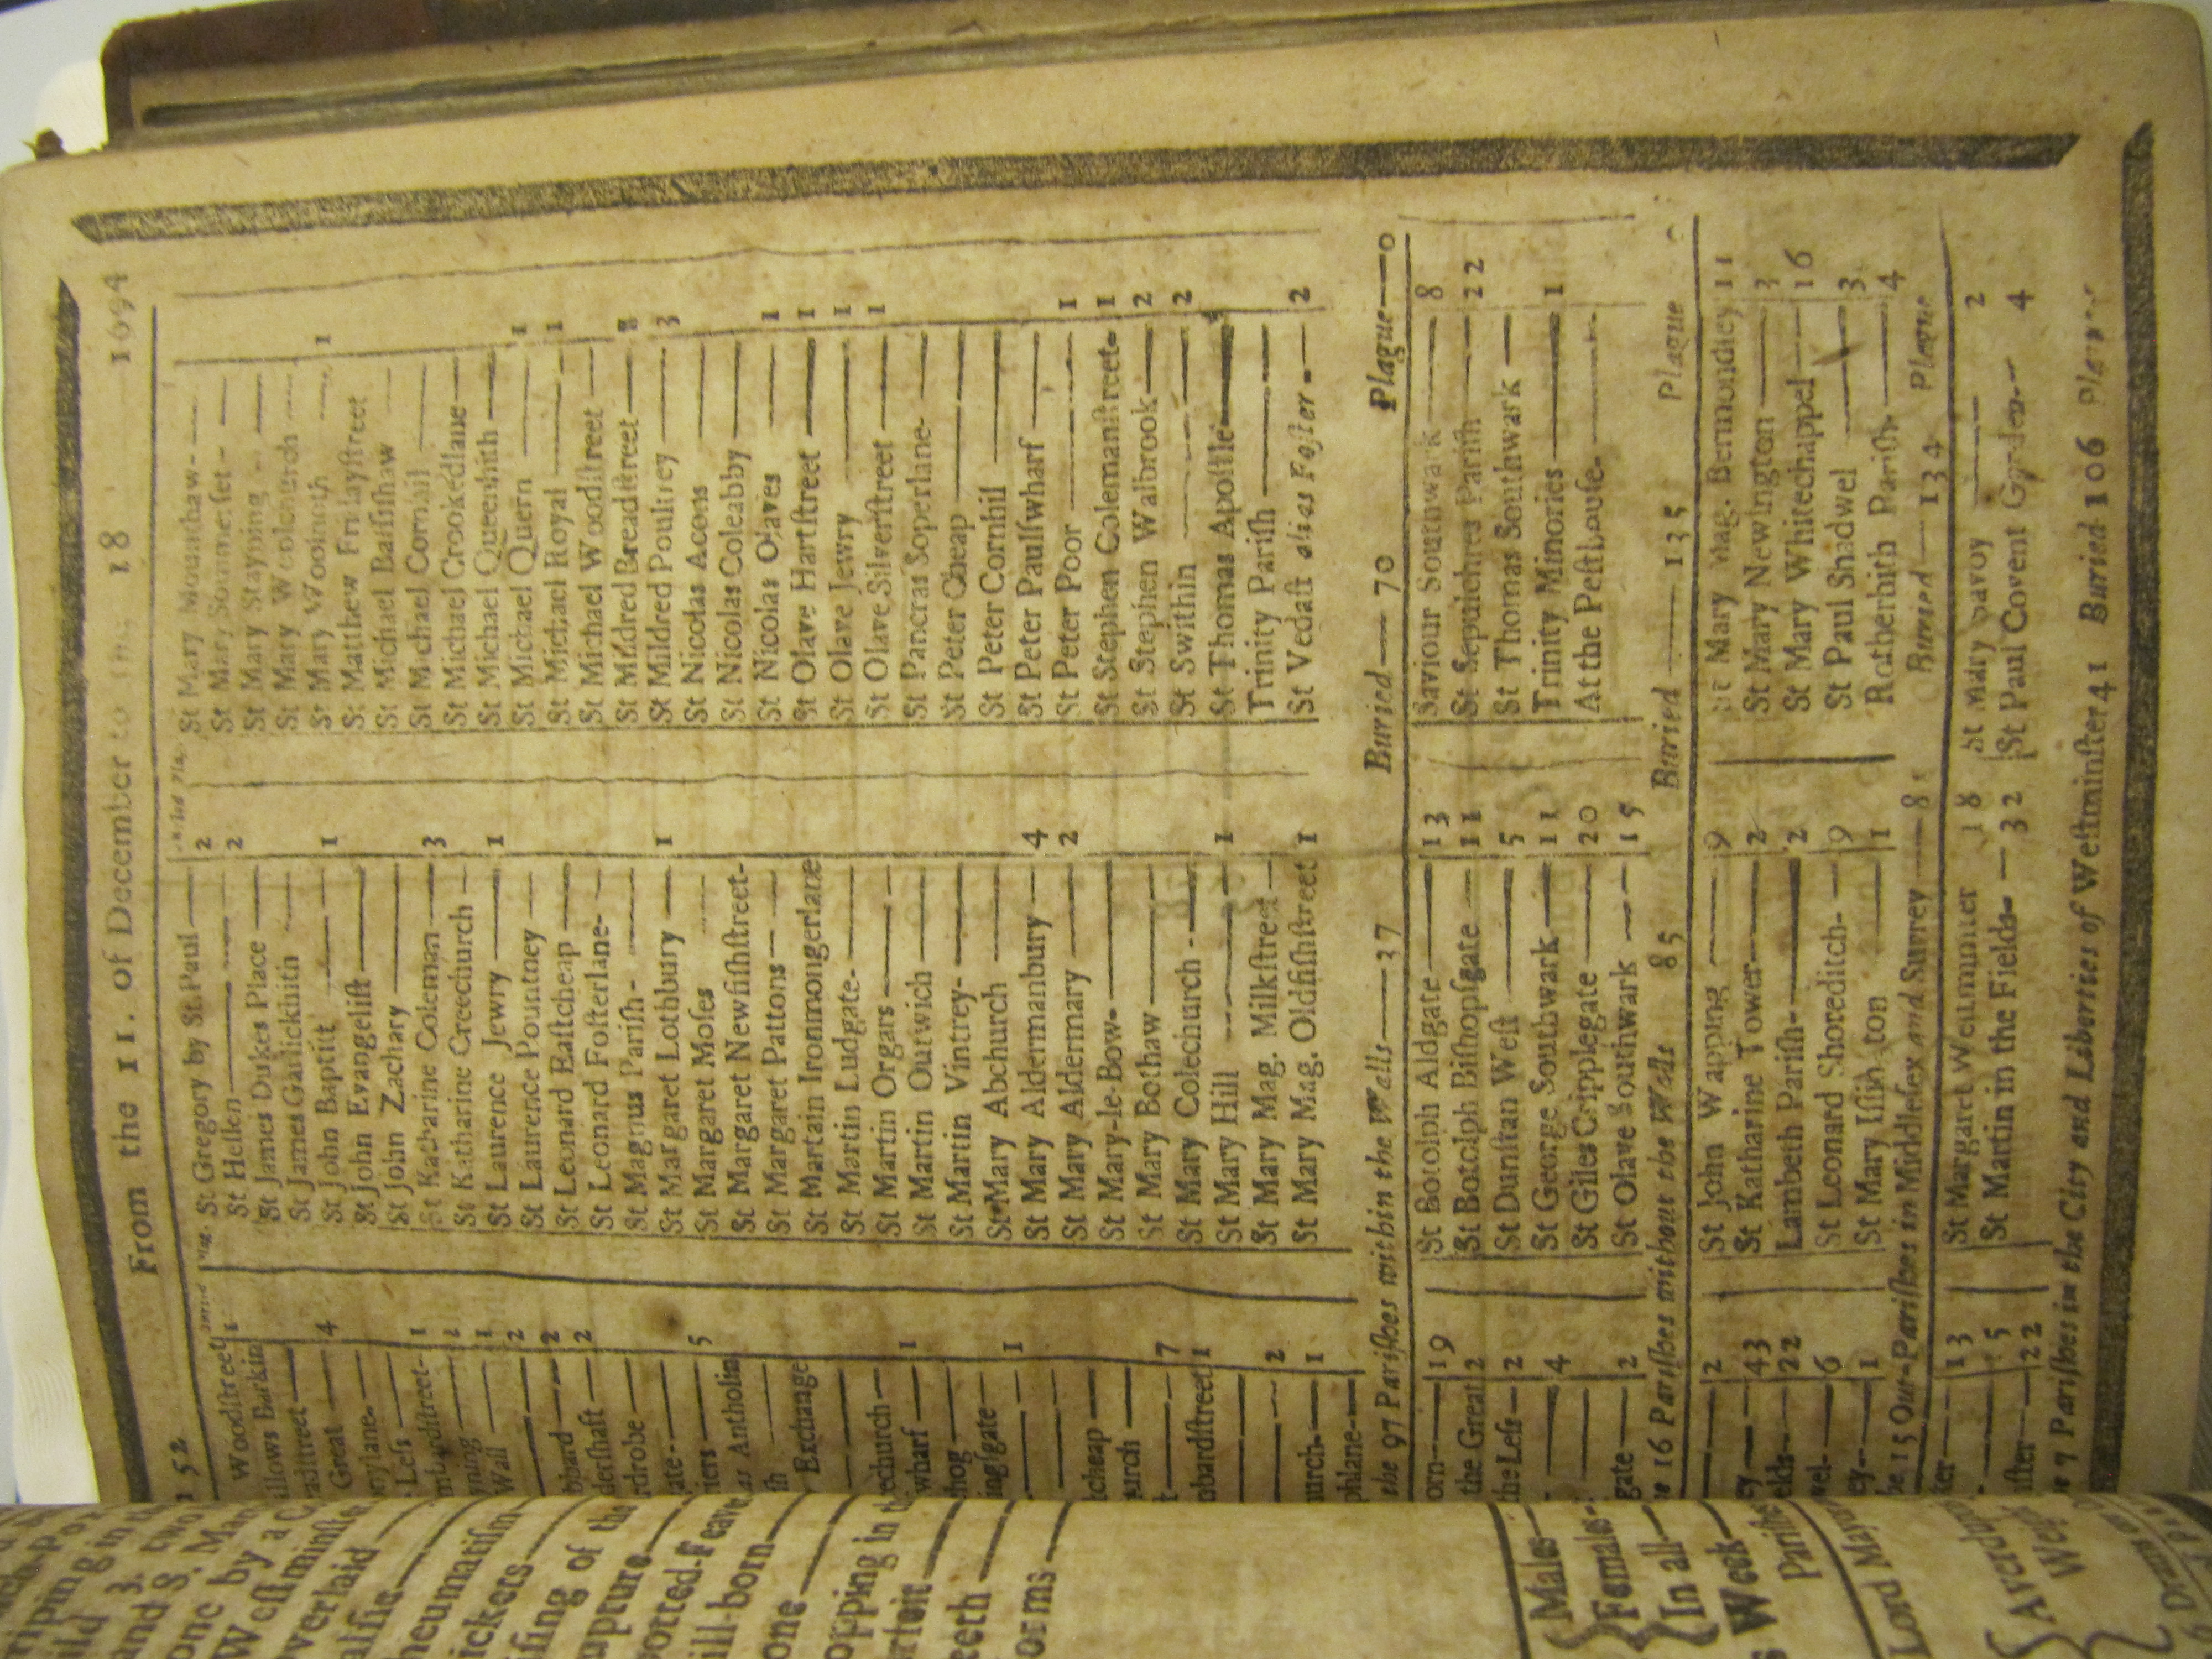 152 From the 11. of December to the 18 1694
Woodſtreet 1
allows Barkin
eadſtreet
Great 4
eylane
Leſs 1
mbardſtreet 1
yning 1
Wall 2
2
bbard 2
derſhaft
drobe
gate
riers 5
as Antholin
ſh
Exchange
echurch
wharf 1
hog
ingſgate
1
tcheap
urch
7
ombardſtreet 1
2
hurch 1
phlane
St Gregory by St. Paul 2
St Hellen 2
St James Dukes Place
St James Garlickhith
St John Baptiſt 1
St John Evangeliſt
St John Zachary
St Katharine Coleman 3
St Katharine Creechurch
St Laurence Jewry 1
St Laurence Pountney
St Leonard Eaſtcheap
St Leonard Foſterlane
St Magnus Pariſh
St Margaret Lothbury 1
St Margaret Moſes
St Margaret Newfiſhſtreet
St Margaret Pattons
St Martain Ironmongerlane
St Martin Ludgate
St Martin Orgars
St Martin Outwich
St Martin Vintrey
St Mary Abchurch
St Mary Aldermanbury 4
St Mary Aldermary 2
St Mary-le-Bow
St Mary Bothaw
St Mary Colechurch
St Mary Hill 1
St Mary Mag. Milkſtreet
St Mary Mag. Oldfiſhſtreet 1
St Mary Mounthaw
St Mary Sommerſet
St Mary Stayning
St Mary Woolchurch
St Mary Woolnoth 1
St Matthew Fridayſtreet
St Michael Baſſiſhaw
St Michael Cornhil
St Michael Crookedlane
St Michael Queenhith
St Michael Quern 1
St Michael Royal 1
St Michael Woodſtreet
St Mildred Breadſtreet
St Mildred Poultrey 3
St Nicolas Acons
St Nicolas Coleabby
St Nicolas Olaves 1
St Olave Hartſtreet 1
St Olave Jewry 1
St Olave Silverſtreet 1
St Pancras Soperlane
St Peter Cheap
St Peter Cornhil
St Peter Paulſwharf
St Peter Poor 1
St Stephen Colemanſtreet 1
St Stephen Walbrook 2
St Swithin 2
St Thomas Apoſtle
Trinity Pariſh
St Vedaſt alias Foſter 2
the 97 Pariſhes within the Walls 37 Buried 70 Plague 0
orn 19
the Great 2
the Leſs 2
4
gate 2
St Botolph Aldgate 13
St Botolph Biſhopſgate 11
St Dunſtan Weſt 5
St George Southwark 11
St Giles Cripplegate 20
St Olave Southwark 15
Saviour Southwark 8
St Sepulchres Pariſh 22
St Thomas Southwark
Trinity Minories 1
At the Peſthouſe
16 Pariſhes without the Walls 85 Buried 135 Plague
2
ey 43
elds 22
wel 6
ey 1
St John Wapping 9
St Katharine Tower 2
Lambeth Pariſh 2
St Leonard Shoreditch 9
St Mary Iſlington 1
St Mary Mag. Bermondſey 11
St Mary Newington 3
St Mary Whitechappel 16
St Paul Shadwel 3
Rotherhith Pariſh 4
15 Out-Pariſhes in Middleſex and Surrey 8 Buried 134 Plague
13
5
22
St Margaret Weſtminſter 18
St Martin in the Fields 32
St Mary Savoy 2
St Paul Covent Garden 4
7 Pariſhes in the City and Liberties of Weſtminſter 41 Buried 106
and 3.
one by a
Weſtminſte
verlaid
heumatiſm
ickets
iſing of the
upture
potted-Feave
ill-born
one
opping in
eeth
orms
Males
Females
In all
Week
Pariſhe
Lord Mayor
Averdup